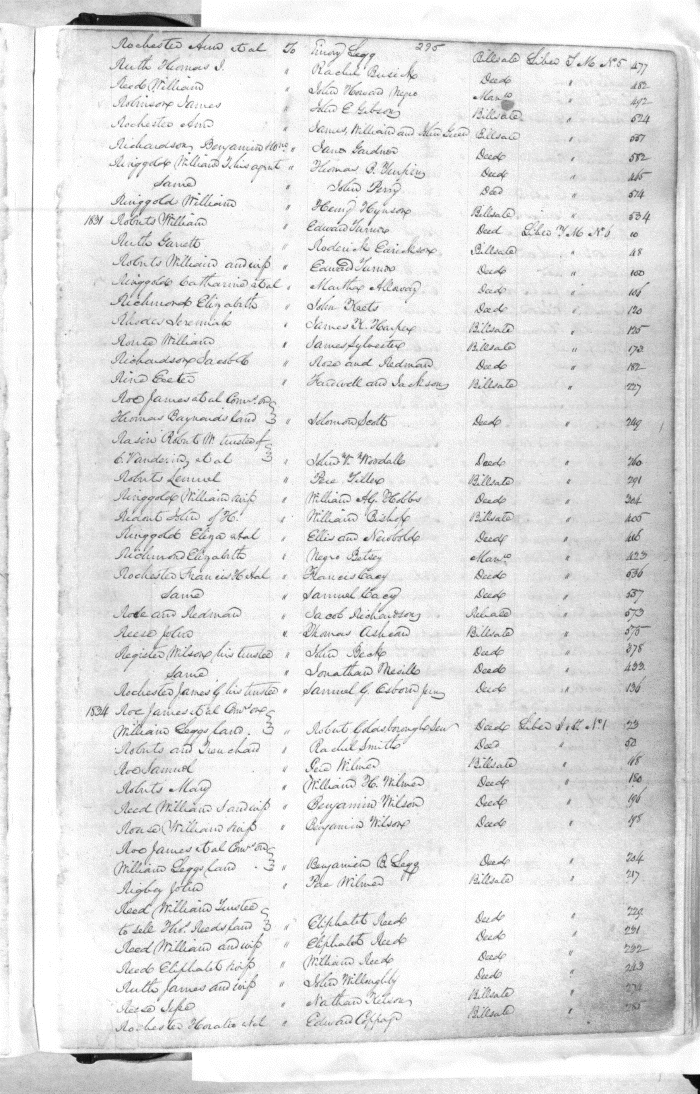 295
Rochester Ann et al To Emory Legg Billsale Liber T M No 5 477
Ruth Thomas I. " Rachel Deed " 482
Reed William " John Howard Negro Manso " 492
Robinson James " John E Gibson Billsale " 524
Rochester Ann " James, William and John Billsale " 557
Richardson Benjamin " Gardner Deed " 582
Ringgold William T his agent " Thomas B. Deed " 465
Same " John Perry Deed " 574
Ringgold William " Henry Hynson Billsale " 534
1831 Roberts William " Edward Turner Deed Liber T M No 6 10
Ruth Garrett " Roderick Billsale " 48
Roberts William and wife " Edward Turner Deed " 100
Ringgold Catharine et al " Martha Deed " 106
Richmond Elizabeth " John Keets Deed " 120
Rhodes Jeremiah " James K. Harper Billsale " 125
Rouse William " James Sylvester Billsale " 170
Richardson Jacob " Rose and Redman Deed " 182
Ring Exeter " Hardwell and Jackson Billsale " 227
Roe James et al Comrs on
Thomas Baynards land " Solomon Scott Deed " 249
Rasin Robert W. trustee of
C. et al " John W Woodall Deed " 260
Roberts Lemuel " Pere Billsale " 291
Ringgold William & wife " William A. Hobbs Deed " 304
John of H. " William Bishop Billsale " 405
Ringgold Eliza et al " Ellis and Newbold Deed " 416
Richmond Elizabeth " Negro Betsey Manso " 423
Rochester Francis H et al " Francis Cacy Deed " 536
Same " Samuel Cacy Deed " 537
Rose and Redman " Jacob Richardson Release " 573
Reese John " Thomas Ashcom Billsale " 575
Register Wilson, his trustee " John Beck Deed " 378
Same " Jonathan Deed " 433
Rochester James G his trustee " Samuel G. Osborn Junr Deed " 136
1834 Roe James et al Comrs on
William Leggs land " Robert Goldsborough Senr Deed Liber No 1 23
Roberts and " Rachel Smith Deed " 50
Roe Samuel " Gere Wilmer Billsale " 48
Roberts Mary " William H. Wilmer Deed " 180
Reed William I and wife " Benjamin Wilson Deed " 196
Rouse William & wife " Benjamin Wilson Deed " 198
Roe James et al Comrs on
William Leggs land " Benjamin B. Legg Deed " 204
Rigby John " Pere Wilmer Billsale " 217
Reed William Trustee
to sell Thos. Reeds land " Eliphalet Reed Deed " 229
Reed William and wife " Eliphalet Reed Deed " 231
Reed Eliphalet & wife " William Reed Deed " 232
Ruth James and wife " John Willoughby Deed " 243
Reese " Nathan Billsale " 274
Rochester Horatio et al " Edward Coppage Billsale " 285